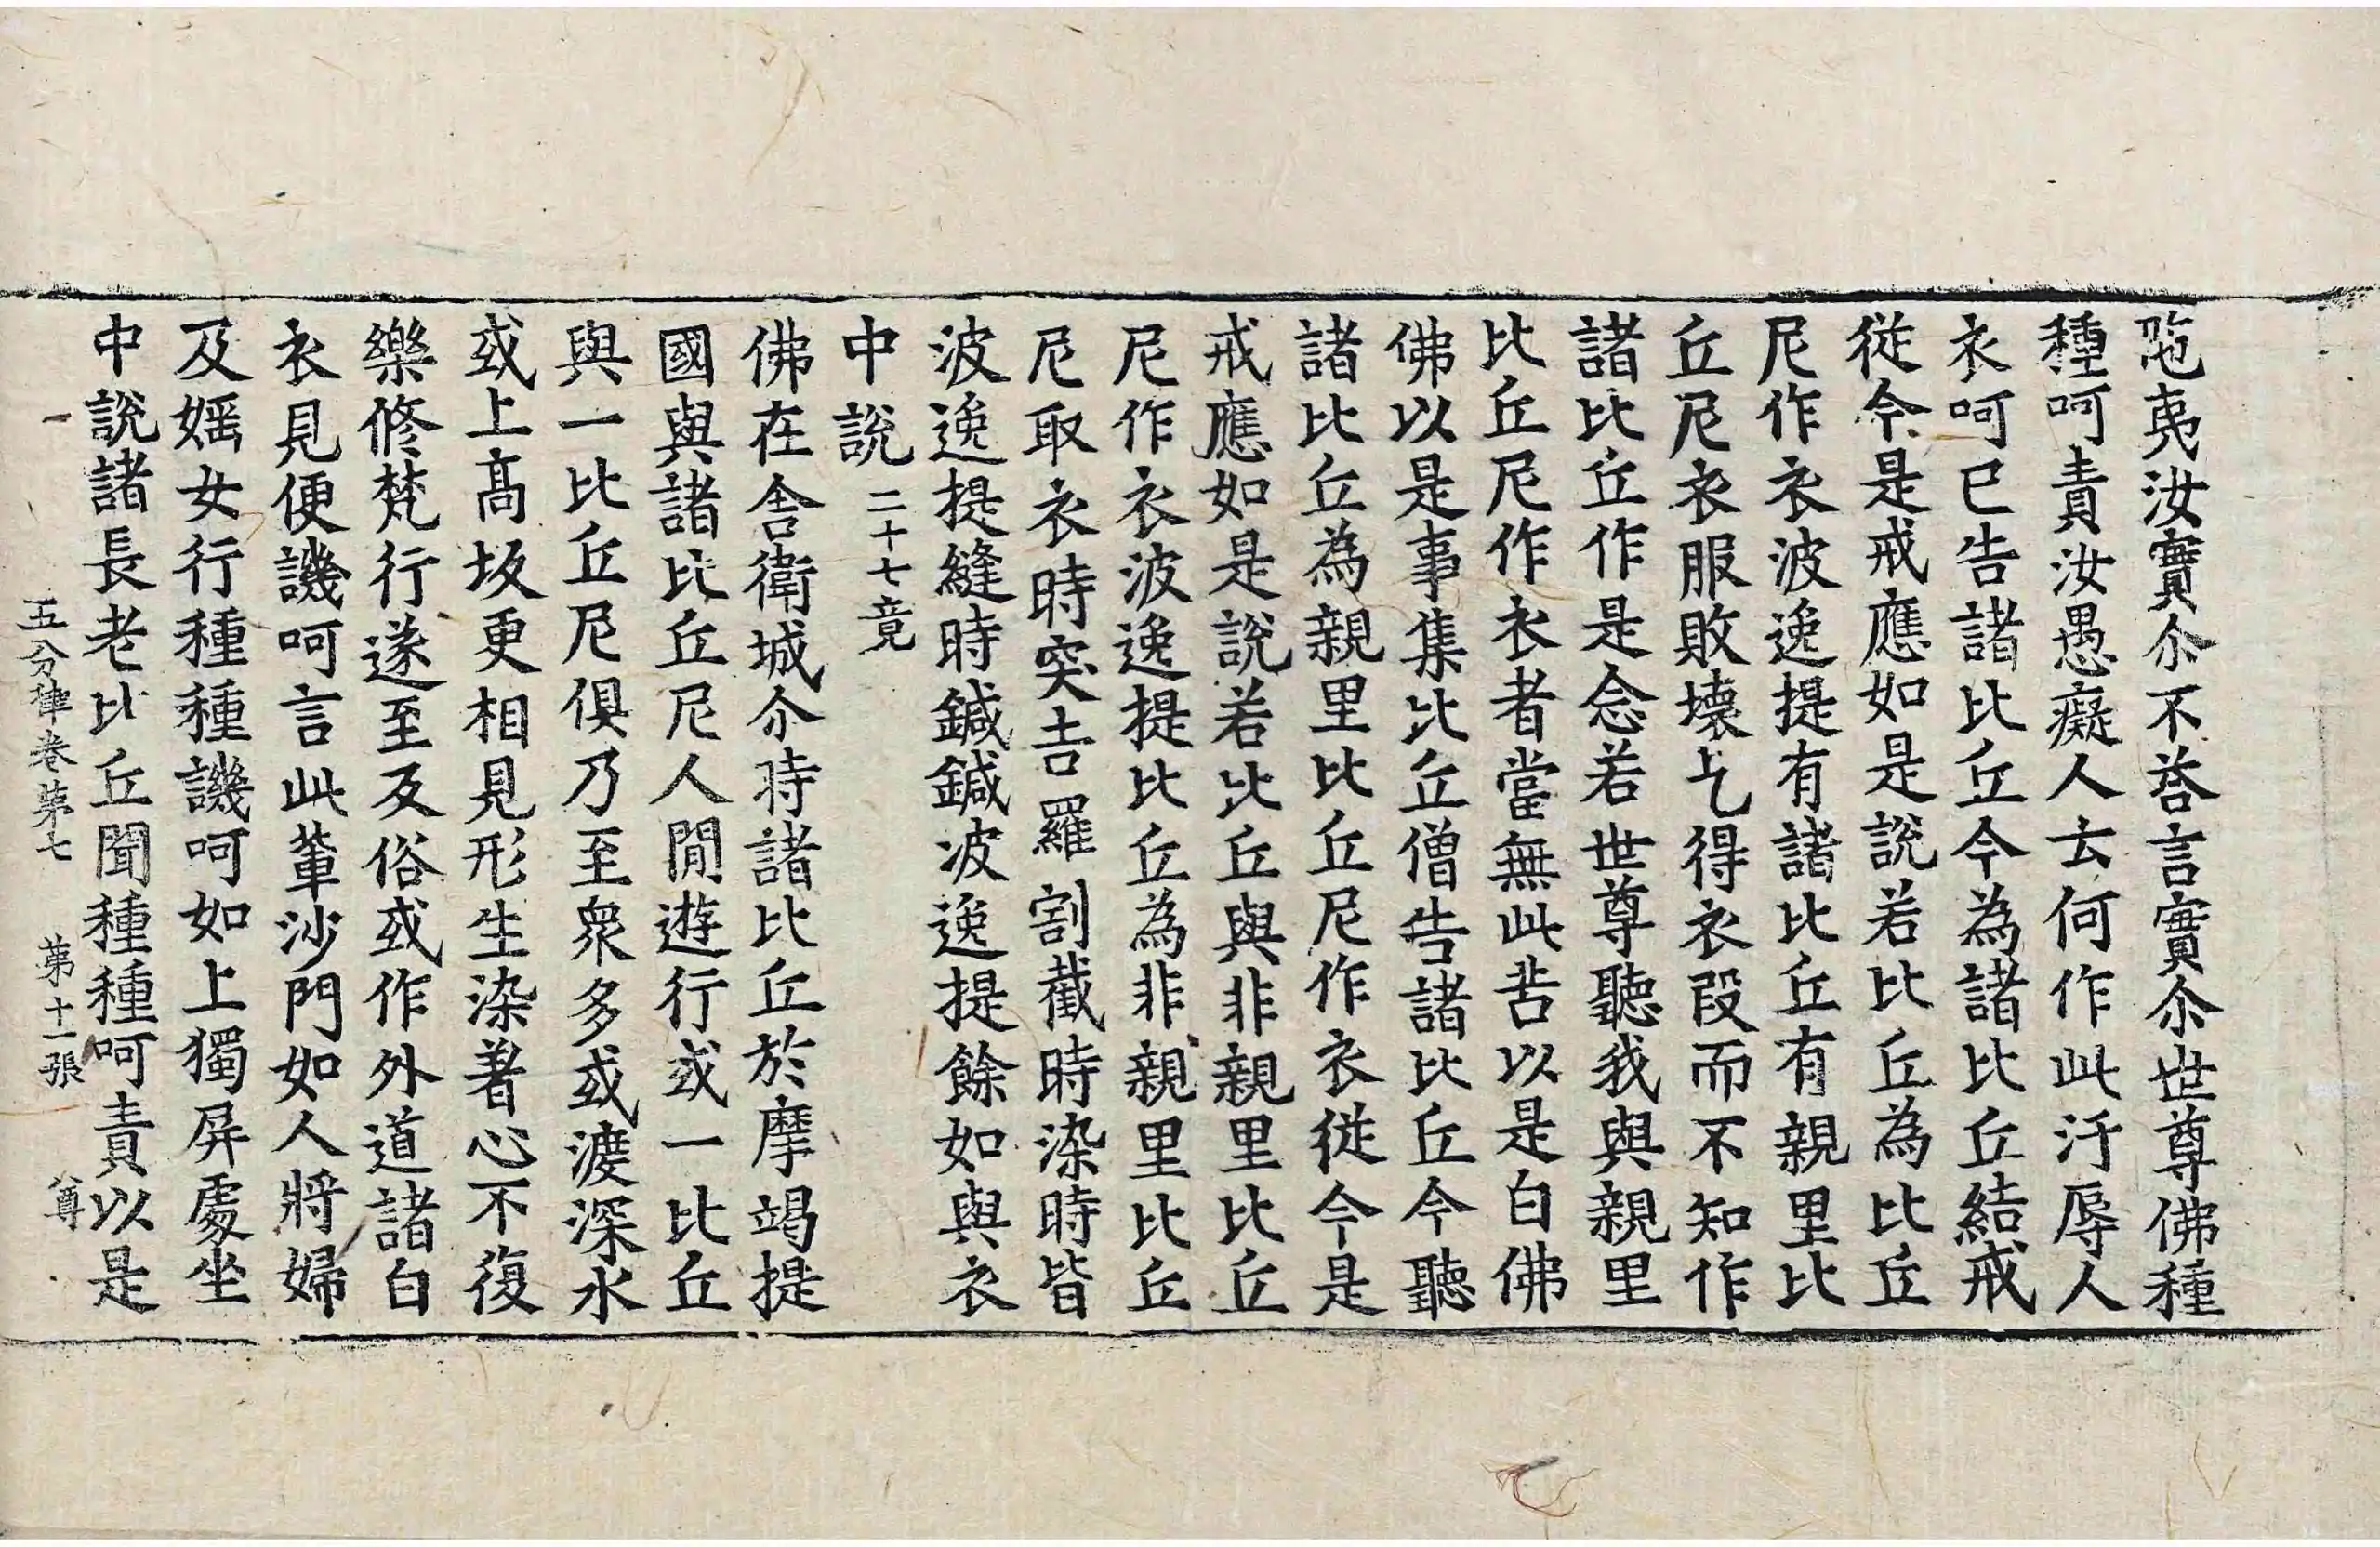 陁夷汝實尒不荅言實尒世尊佛種
種呵責汝愚癡人云何作此汙辱人
衣呵已告諸比丘今為諸比丘結戒
従今是戒應如是說若比丘為比丘
尼作衣波逸提有諸比丘有親里比
丘尼衣服敗壞乞得衣段而不知作
諸比丘作是念若世尊聽我與親里
比丘尼作衣者當無此苦以是白佛
佛以是事集比丘僧告諸比丘今聽
諸比丘為親里比丘尼作衣従今是
戒應如是說若比丘與非親里比丘
尼作衣波逸提比丘為非親里比丘
尼取衣時突吉羅割截時染時皆
波逸提縫時鍼鍼波逸提餘如與衣
中說 二十七竟
佛在舍衛城尒時諸比丘於摩竭提
國與諸比丘尼人閒遊行或一比丘
與一比丘尼俱乃至衆多或渡深水
或上髙坂更相見形生染著心不復
樂修梵行遂至反俗或作外道諸白
衣見便譏呵言此輩沙門如人將婦
及婬女行種種譏呵如上獨屏處坐
中說諸長老比丘聞種種呵責以是
五分律卷第七 第十一張 公尊